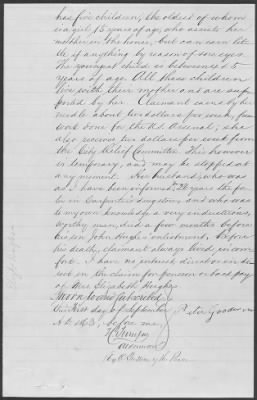 has five children, the oldest of whom
is a girl 13 years of age, who assists her
mother in the house, but can earn lit-
tle if anything by reason of sore eyes.
The youngest child is between 4 & 5
years of age. All these children
live with their mother and are sup-
ported by her. Claimant earns by her
needle about two dollars per week, for
work done for the U.S. Arsenal; she
also receives six dollars per week from
the City Relief Committee. This however
is temporary, and may be stopped at
any moment. Her husband, who
was as I have been informed, 24 years the fore
in Carpenter's drug store, and who was
to my own knowledge a very industrious,
worthy man, died a few months before
his son John Hugh's enlistment. Before
his death, claimant always lived in com-
fort. I have no interest direct or indi-
rect in the claim for pension or back pay
of Mrs Elizabeth Hughs.
Sworn to and subscribed
this first day of September
A.D. 1863, before me,
Alderman